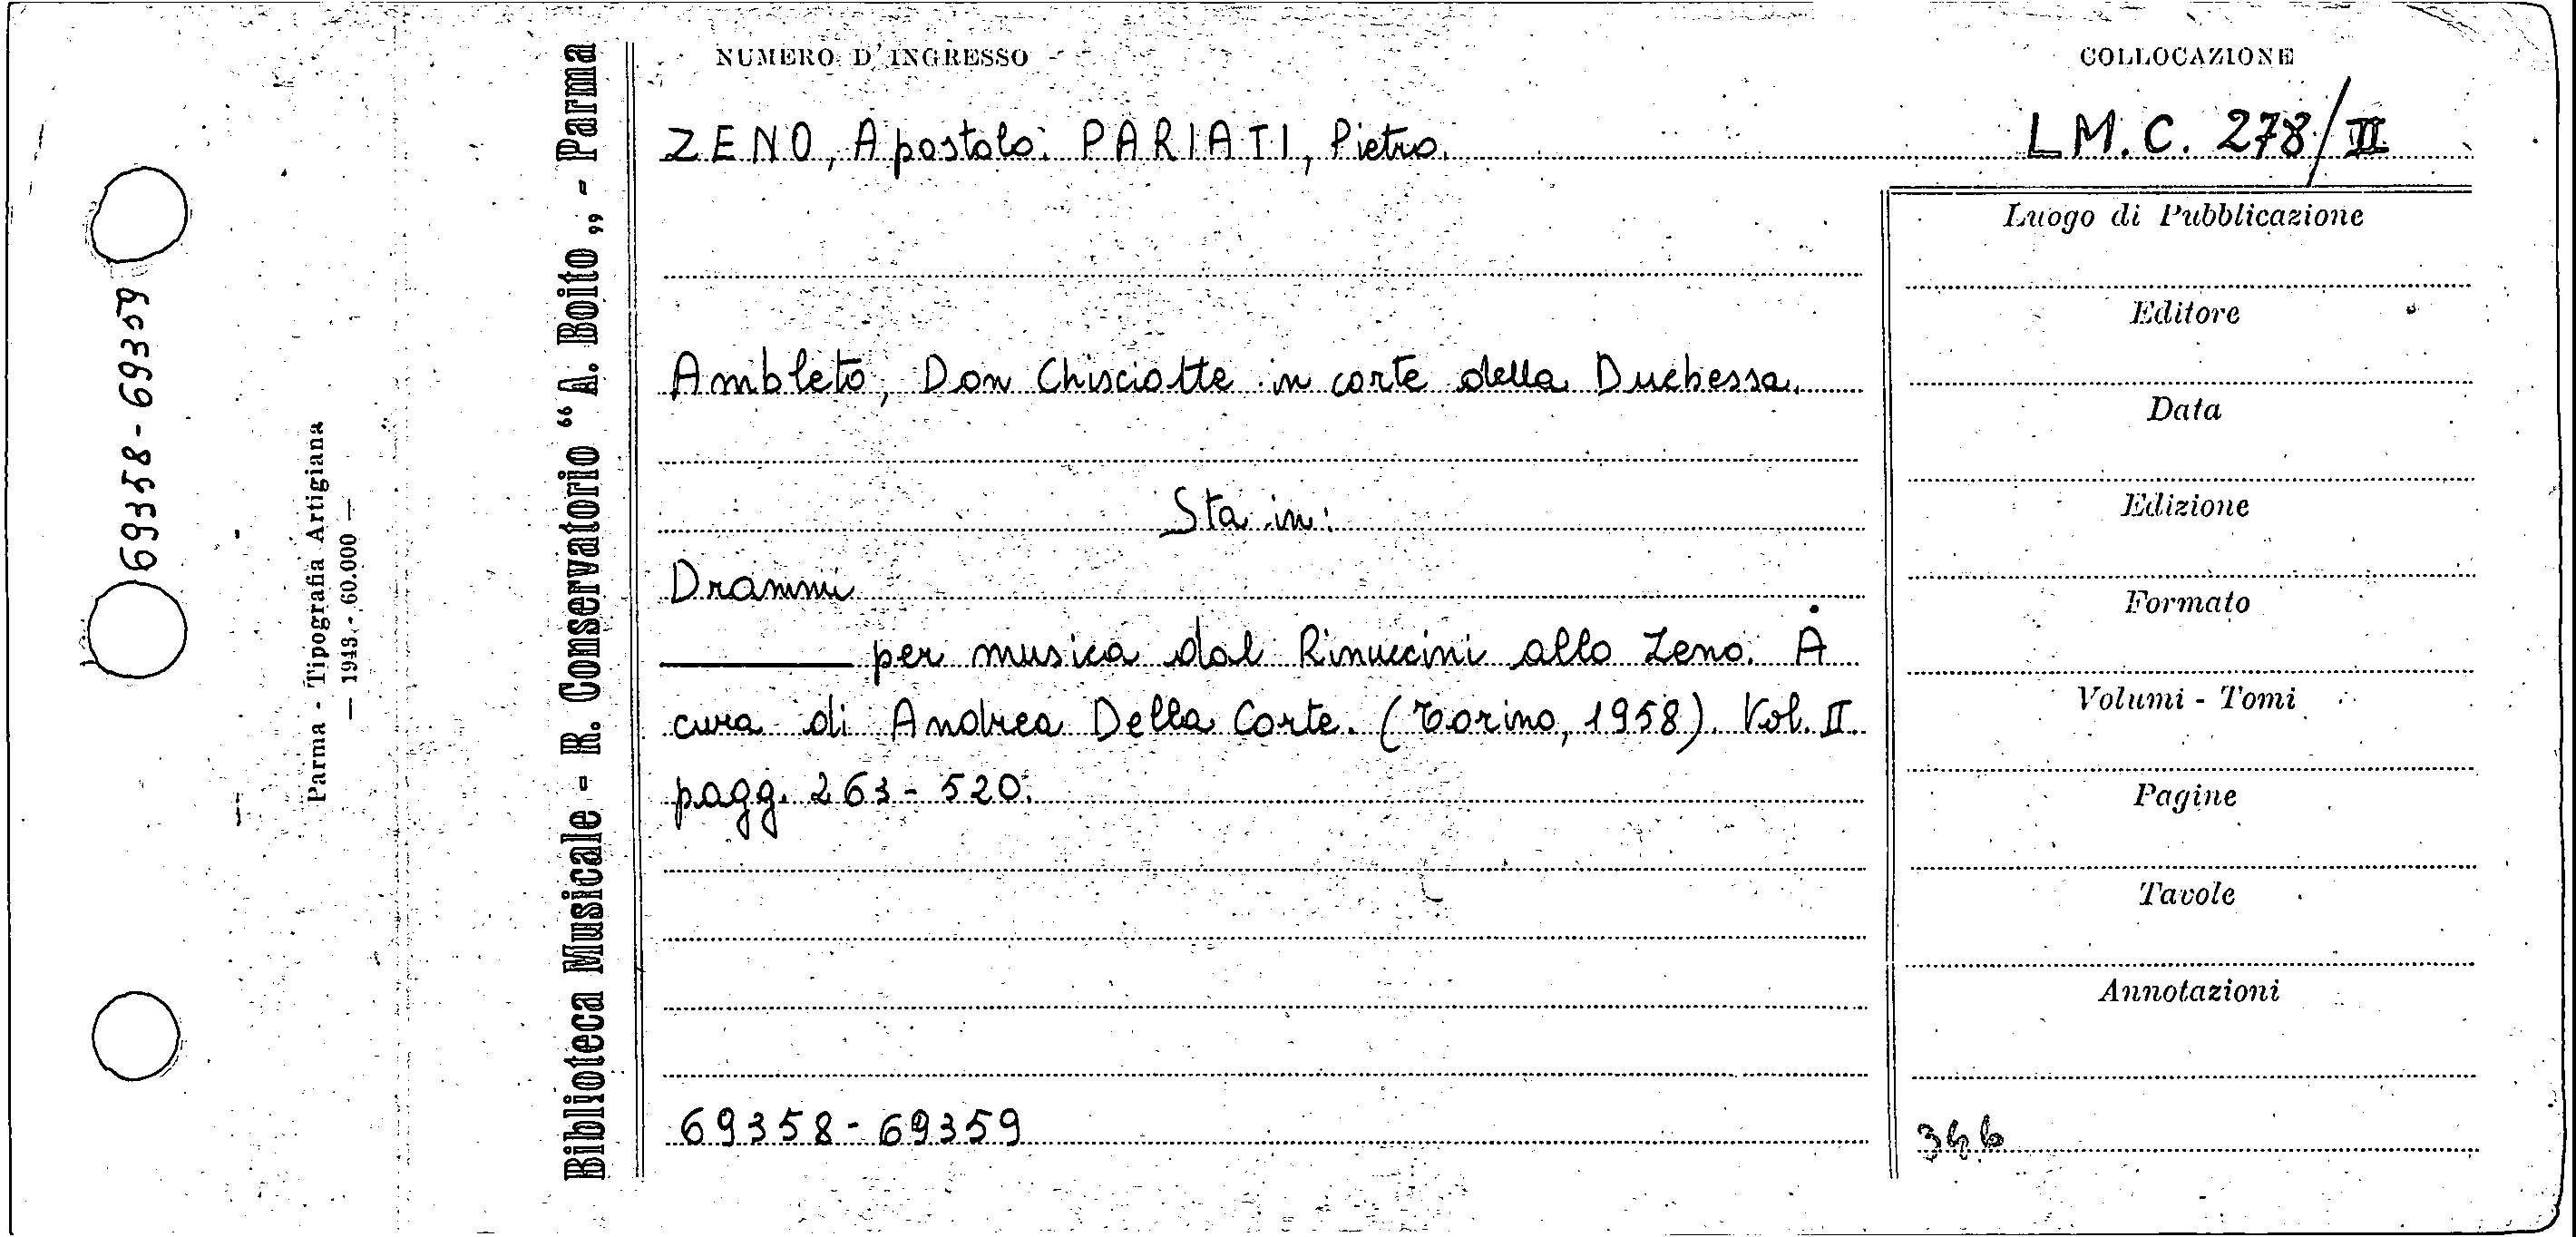 NUMERO D'INGRESSO
COLLOCAZIONE
ZENO, Apostolo. PARIATI, Pietro.
LM.C. 278/II
Ambleto, Don Chisciotte in corte della Duchessa.
Sta in:
Drammi
——— per musica dal Rinuccini allo Zeno. A
cura di Andrea Della Corte. (Torino, 1958). Vol. II.
pagg. 263-520.
69358-69359
Luogo di Pubblicazione
Editore
Data
Edizione
Formato
Volumi - Tomi
Pagine
Tavole
Annotazioni
Biblioteca Musicale - R. Conservatorio “A. Boito„ - Parma
Parma - Tipografia Artigiana
— 1943 - 60.000 —
69358-69359